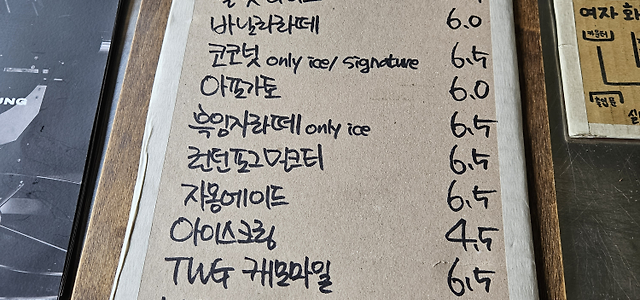 바닐라라떼 6.0
코코넛 only ice/signature 6.5
아포가토 6.0
흑임자라떼 only ice 6.5
런던포그밀크티 6.5
자몽에이드 6.5
아이스크림 4.5
TWG 캐모마일 6.5
여자 화